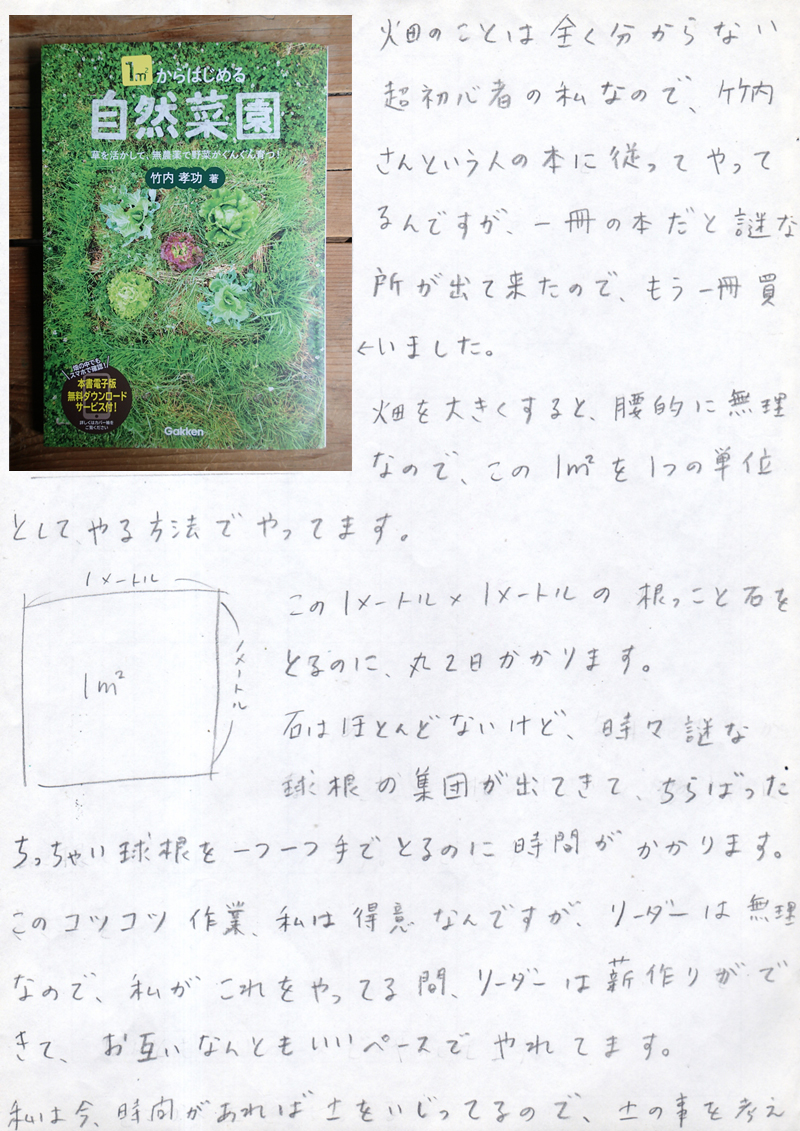 1㎡からはじめる
自然菜園
草を活かして、無農薬で野菜がぐんぐん育つ！
竹内 孝功 著
スマホで確認！
本書電子版
無料ダウンロード
サービス付！
詳しくはカバー袖を
ご覧ください
Gakken
畑のことは全く分からない
超初心者の私なので、竹内
さんという人の本に従ってやって
るんですが、一冊の本だと謎な
所が出て来たので、もう一冊買
←いました。
畑を大きくすると、腰的に無理
なので、この1m²を1つの単位
としてやる方法でやってます。
1メートル
1メートル
1m²
この1メートル×1メートルの根っこと石を
とるのに、丸2日かかります。
石はほとんどないけど、時々謎な
球根の集団が出てきて、ちらばった
ちっちゃい球根を一つ一つ手でとるのに時間がかかります。
このコツコツ作業、私は得意なんですが、リーダーは無理
なので、私がこれをやってる間、リーダーは薪作りがで
きて、お互いなんともいいペースでやれてます。
私は今、時間があれば土をいじってるので、土の事を考え